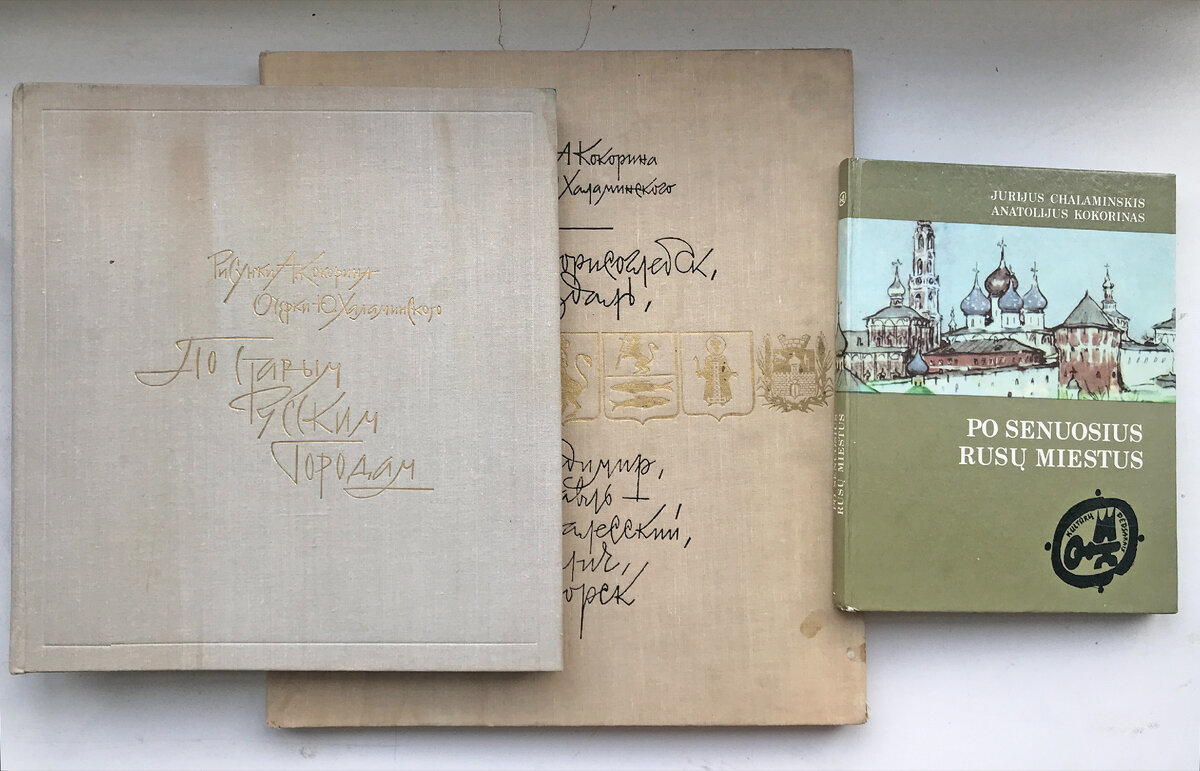 Рисунки А. Кокорина
Очерки Ю. Халаминского
По старым
русским
городам
А. Кокорина
Халаминского
орисоглебск,
здаль,
димир,
авль
алесский,
лич,
орск
JURIJUS CHALAMINSKIS
ANATOLIJUS KOKORINAS
PO SENUOSIUS
RUSŲ MIESTUS
KULTŪRŲ PĖDSAKAI
PO SENUOSIUS
RUSŲ MIESTUS